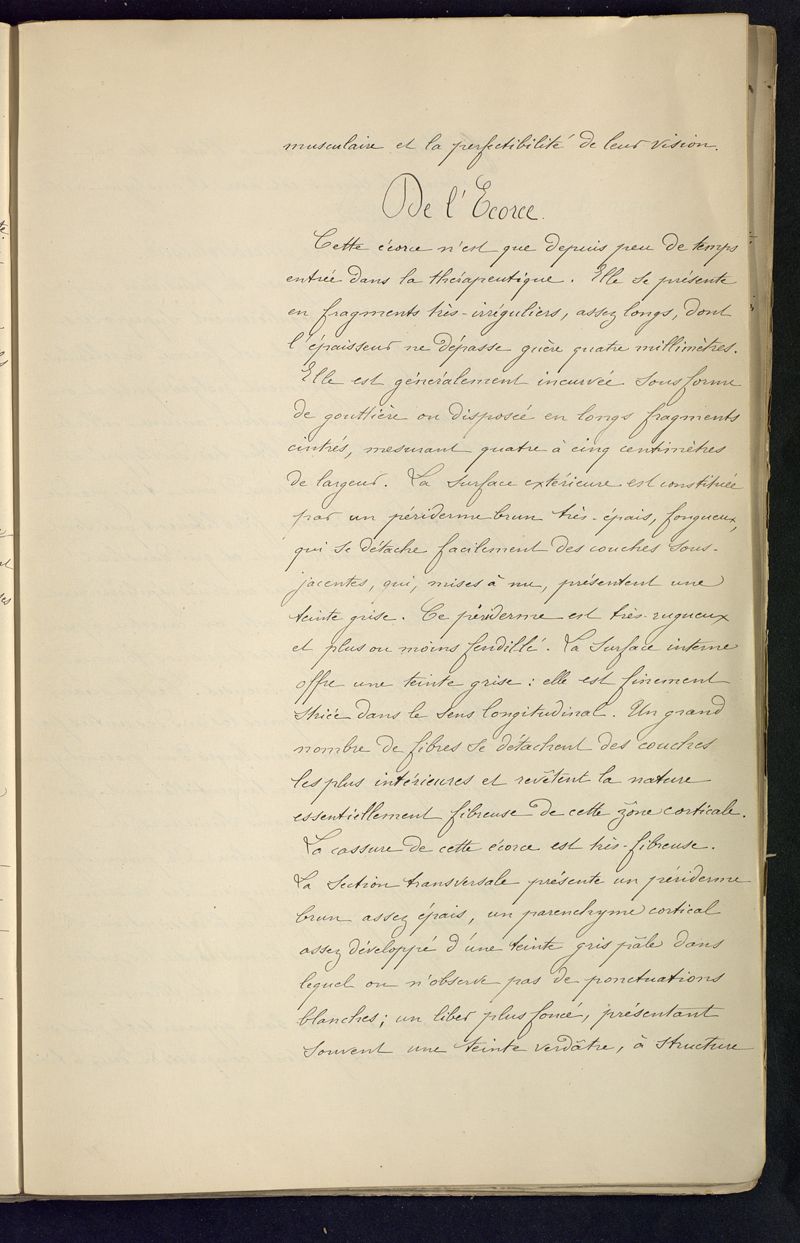 musculaire et la perfectibilité de leur vision.
De l'Ecorce.
Cette écorce n'est que depuis peu de temps
entrée dans la thérapeutique. Elle se présente
en fragments très-irréguliers, assez longs, dont
l'épaisseur ne dépasse guère quatre millimètres.
Elle est généralement incurvée sous forme
de gouttière ou disposée en longs fragments
cintrés, mesurant quatre à cinq centimètres
de largeur. La surface extérieure est constituée
par un périderme brun très-épais, fongueux,
qui se détache facilement des couches sous-
jacentes, qui, mises à nu, présentent une
teinte grise. Ce périderme est très-rugueux
et plus ou moins fendillé. La surface interne
offre une teinte grise : elle est finement
striée dans le sens longitudinal. Un grand
nombre de fibres se détachent des couches
les plus intérieures et revêtent la nature
essentiellement fibreuse de cette zône corticale.
La cassure de cette écorce est très-fibreuse.
La section transversale présente un périderme
brun assez épais, un parenchyme cortical
assez développé d'une teinte gris pâle dans
lequel on n'observe pas de ponctuations
blanches; un liber plus foncé, présentant
souvent une teinte verdâtre, à structure